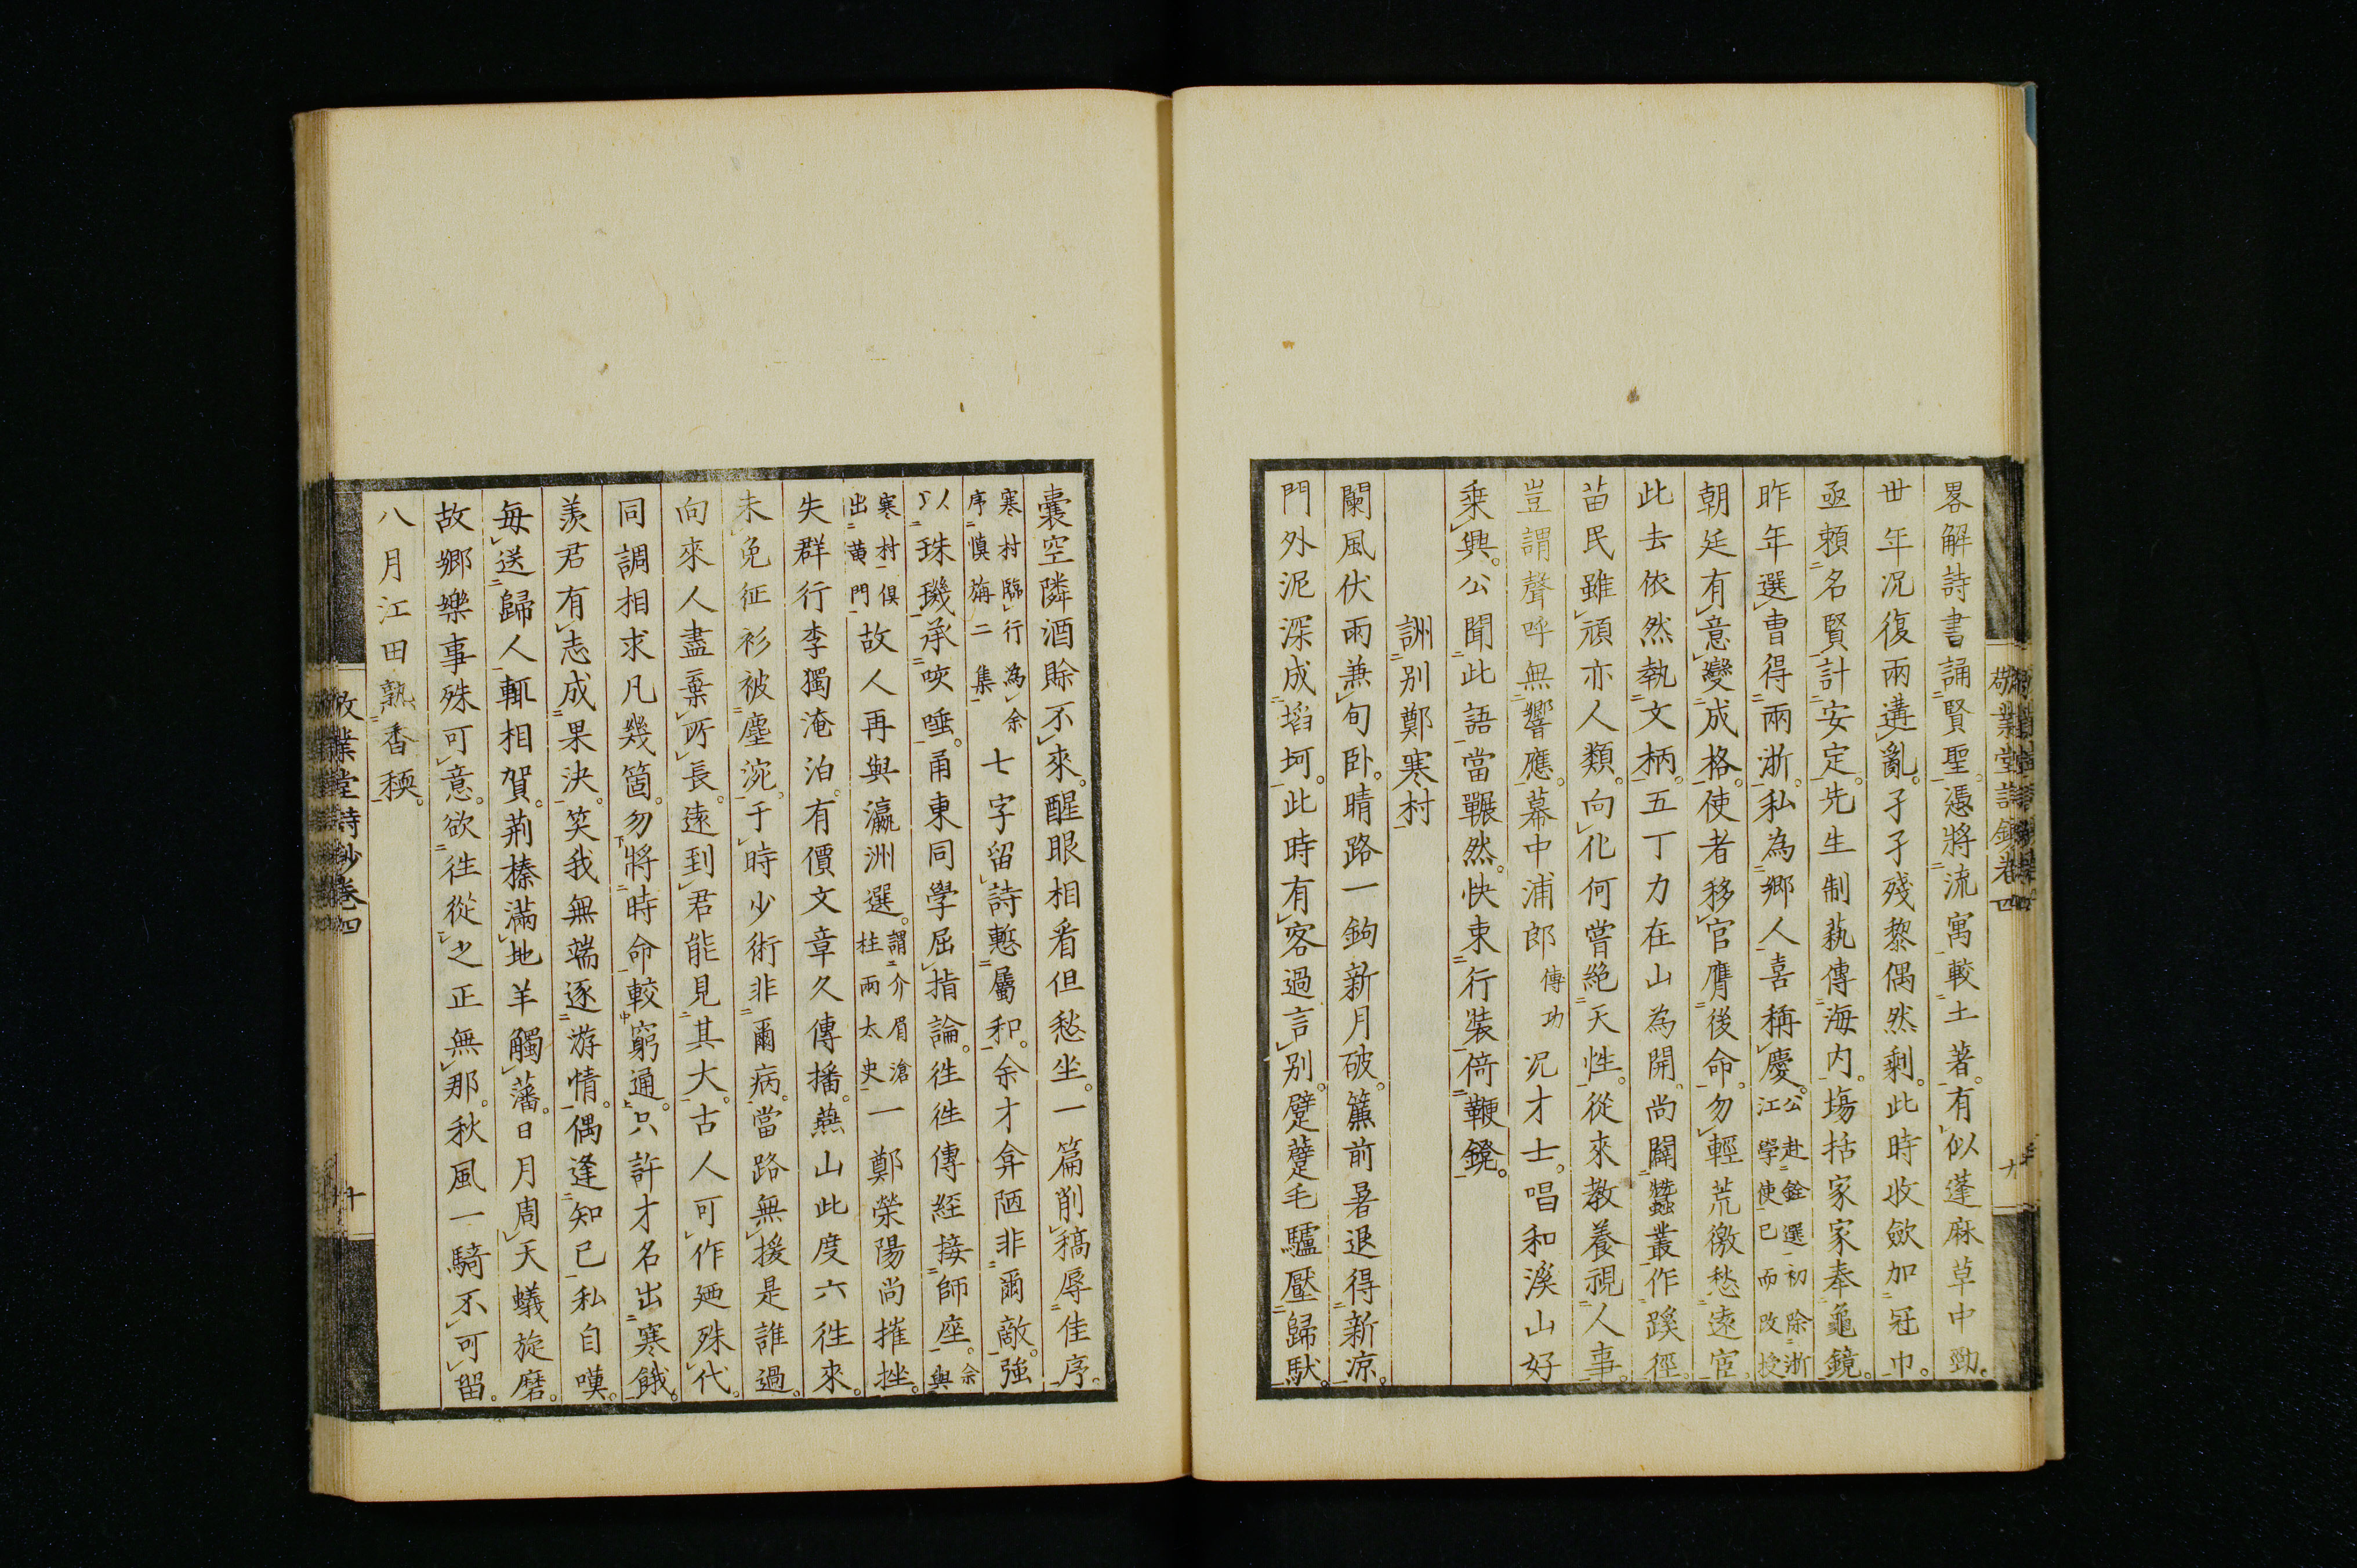 畧解詩書誦賢聖。憑將流寓較土著。有似蓬麻草中勁。
丗年况復兩遘亂。孑孑殘黎偶然剩。此時收歛加冠巾。
亟賴名賢計安定。先生制蓺傳海内。塲括家家奉龜鏡。
昨年選曹得兩浙。私為鄉人喜稱慶。公赴銓選初除浙江學使已而改授
朝廷有意變成格。使者移官膺後命。勿輕荒徼愁遠宦。
此去依然執文柄。五丁力在山為開。尚闢蠶叢作蹊徑。
苗民雖頑亦人類。向化何嘗絶天性。從來教養視人事。
豈謂聲呼無響應。幕中浦郎傳功况才士。唱和溪山好
乗興。公聞此語當囅然。快束行裝倚鞭鐙。
詶别鄭寒村
闌風伏雨兼旬卧。晴路一鉤新月破。簾前暑退得新凉。
門外泥深成埳坷。此時有客過言别。躄躠毛驢壓歸馱。
囊空隣酒賒不來。醒眼相看但愁坐。一篇削稿辱佳序。
寒村臨行為余序慎旃二集七字留詩慙屬和。余才弇陋非爾敵。強
以珠璣承咳唾。甬東同學屈指論。徃徃傳經接師座。余與
寒村俱出黄門故人再與瀛洲選。謂介眉滄柱兩太史一鄭榮陽尚摧挫。
失群行李獨淹泊。有價文章久傳播。燕山此度六徃來。
未免征衫被塵涴。于時少術非爾病。當路無援是誰過。
向來人盡棄所長。遠到君能見其大。古人可作廼殊代。
同調相求凡幾箇。勿將時命較窮通。只許才名出寒餓。
羨君有志成果決。笑我無端逐游情。偶逢知已私自嘆。
每送歸人輒相賀。荊榛滿地羊觸藩。日月周天蟻旋磨。
故鄉樂事殊可意。欲徃從之正無那。秋風一騎不可留。
八月江田熟香稬。
敬業堂詩鈔卷四
十